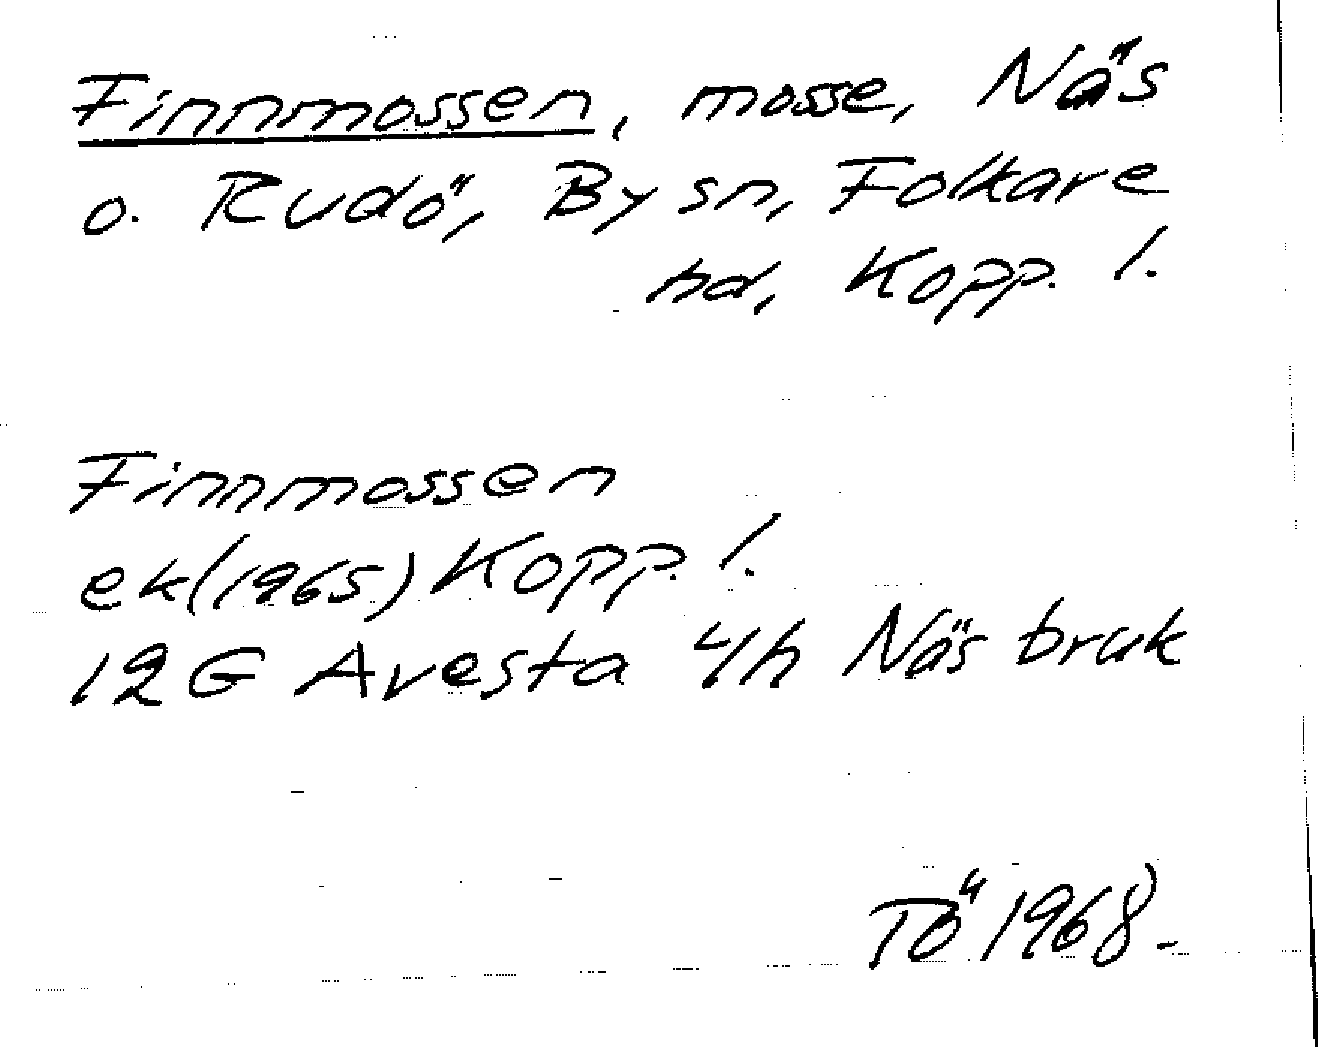 Finnmossen, mosse, Näs
o. Rudö, By sn, Folkare
hd, Kopp. l.
Finnmossen
ek(1965) Kopp. l.
12G Avesta 4h Näs bruk
TÖ 1968.